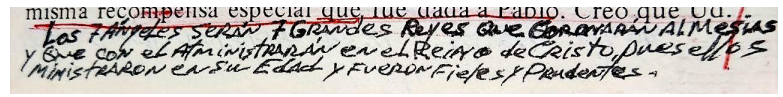 misma recompensa especial que fue dada a Pablo. Creo que Ud.
Los 7 Angeles SERÁN 7 GRANDES REYES QUE CORONARÁN AL MESÍAS
y QUE CON el AdMINISTRARÁN en el Reino de CRISTO, pues ellos
MINISTRARON en Su EDAD y FUERON Fieles y PRUDENTES.